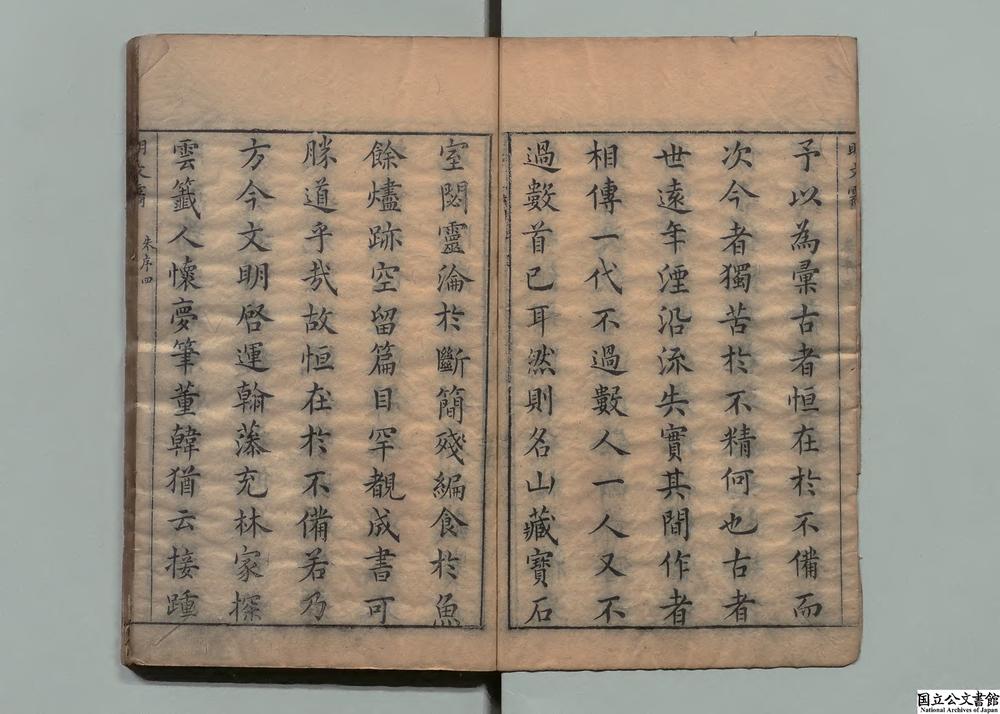 予以為彙古者恒在於不備而
次今者獨苦於不精何也古者
世遠年湮沿流失實其間作者
相傳一代不過數人一人又不
過數首已耳然則名山藏寶石
室閟靈淪於斷簡殘編食於魚
餘燼跡空留篇目罕覩成書可
勝道乎哉故恒在於不備若乃
方今文明啓運翰藻充林家探
雲籤人懷夢筆董韓猶云接踵
朱序四
国立公文書館
National Archives of Japan